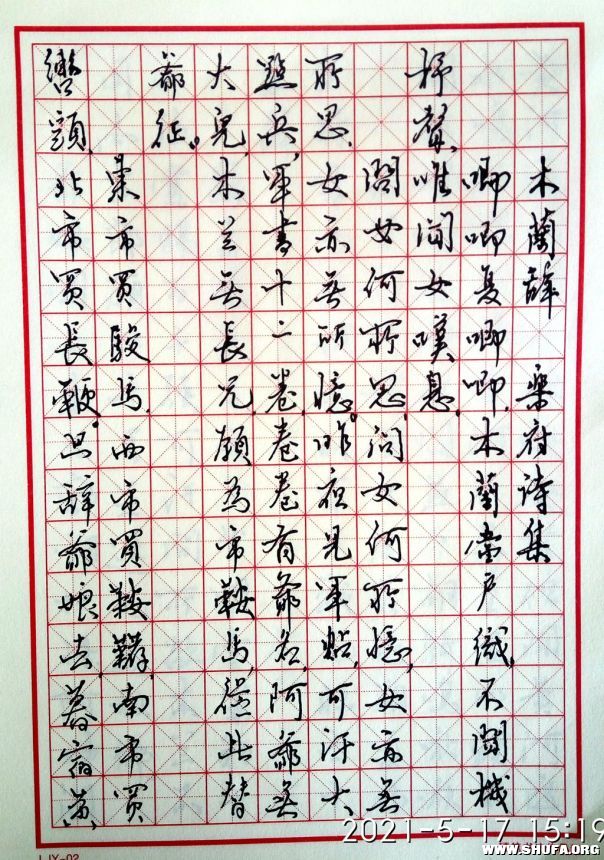 木蘭辭 樂府詩集
唧唧复唧唧,木蘭當户織,不聞機
杼聲,唯聞女嘆息。
問女何所思,問女何所憶,女亦無
所思,女亦無所憶。昨夜見軍帖,可汗大
點兵,軍書十二卷,卷卷有爺名,阿爺無
大兒,木兰無長兄,願為市鞍馬,從此替
爺征。
東市買駿馬,西市買鞍韉,南市買
轡頭,北市買長鞭。旦辞爺娘去,暮宿黄
2021-5-17 15:19
WWW.SHUFA.ORG